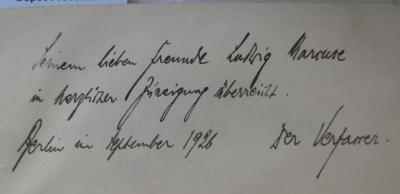 Seinem lieben Freunde Ludwig Marcuse
in herzlicher Zuneigung überreicht.
Berlin im September 1926 Der Verfasser.